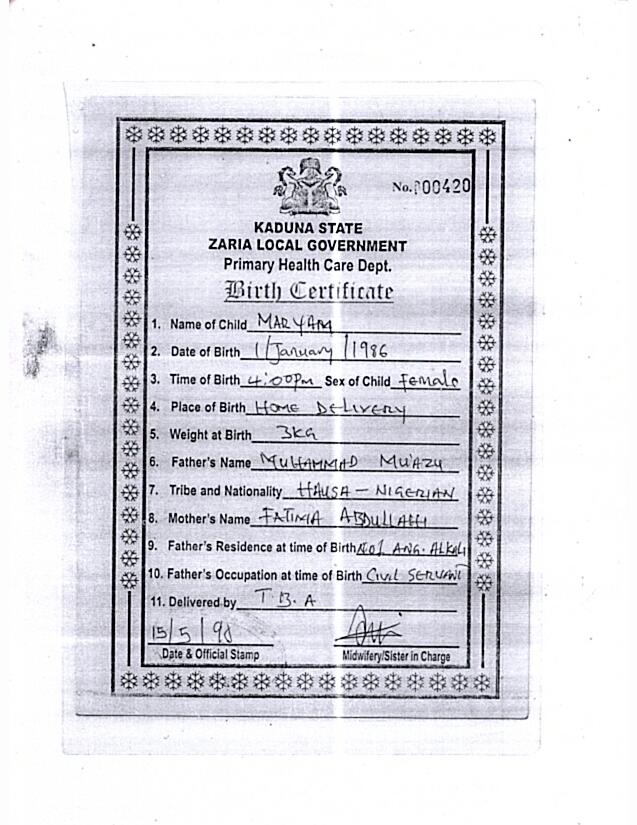 No. 000420
KADUNA STATE
ZARIA LOCAL GOVERNMENT
Primary Health Care Dept.
Birth Certificate
1. Name of Child MARYAM
2. Date of Birth 1/January/1986
3. Time of Birth 4:00pm Sex of Child Female
4. Place of Birth HOME DELIVERY
5. Weight at Birth 3KG
6. Father's Name MUHAMMAD MU'AZU
7. Tribe and Nationality HAUSA - NIGERIAN
8. Mother's Name FATIMA ABDULLAHI
9. Father's Residence at time of Birth ANG. ALKALI
10. Father's Occupation at time of Birth CIVIL SERVANT
11. Delivered by T.B.A
15/5/90
Date & Official Stamp Midwifery/Sister in Charge